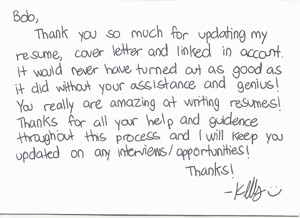 Bob,
Thank you so much for updating my
resume, cover letter and linked in account.
It would never have turned out as good as
it did without your assistance and genius!
You really are amazing at writing resumes!
Thanks for all your help and guidence
throughout this process and I will keep you
updated on any interviews/opportunities!
Thanks!
-Kelly